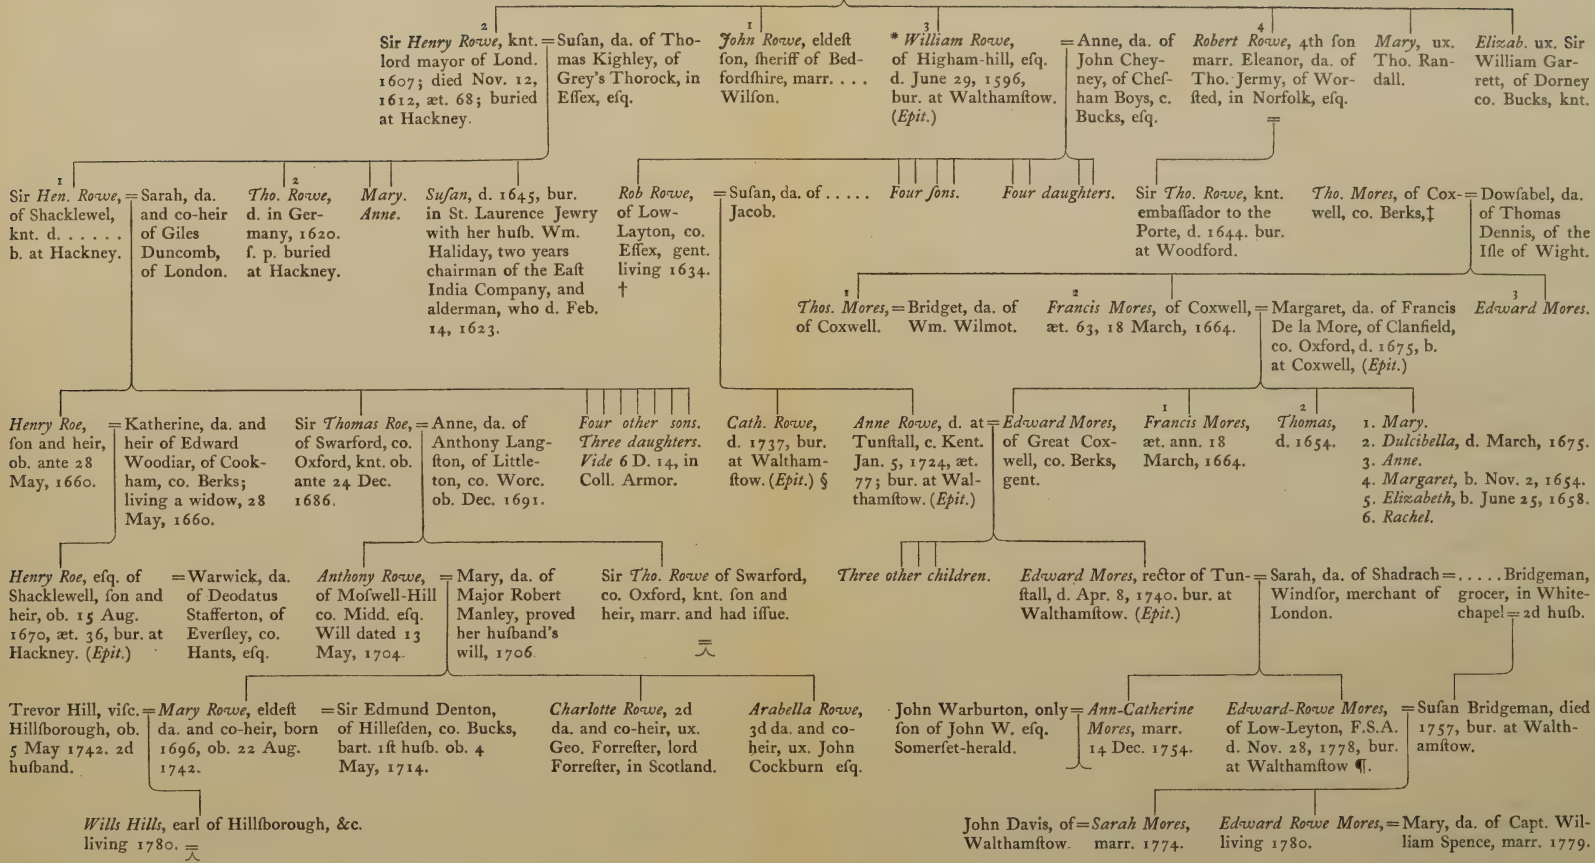 2
Sir Henry Rowe, knt. =
lord mayor of Lond.
1607; died Nov. 12,
1612, æt. 68; buried
at Hackney.
Suſan, da. of Tho-
mas Kighley, of
Grey's Thorock, in
Eſſex, eſq.
1
John Rowe, eldeſt
ſon, ſheriff of Bed-
fordſhire, marr. . . .
Wilſon.
3
* William Rowe,
of Higham-hill, eſq.
d. June 29, 1596,
bur. at Walthamſtow.
(Epit.)
= Anne, da. of
John Chey-
ney, of Cheſ-
ham Boys, c.
Bucks, eſq.
4
Robert Rowe, 4th ſon
marr. Eleanor, da. of
Tho. Jermy, of Wor-
ſted, in Norfolk, eſq.
=
Mary, ux.
Tho. Ran-
dall.
Elizab. ux. Sir
William Gar-
rett, of Dorney
co. Bucks, knt.
1
Sir Hen. Rowe, =
of Shacklewel,
knt. d. . . . . .
b. at Hackney.
Sarah, da.
and co-heir
of Giles
Duncomb,
of London.
2
Tho. Rowe,
d. in Ger-
many, 1620.
ſ. p. buried
at Hackney.
Mary.
Anne.
Suſan, d. 1645, bur.
in St. Laurence Jewry
with her huſb. Wm.
Haliday, two years
chairman of the Eaſt
India Company, and
alderman, who d. Feb.
14, 1623.
Rob Rowe,
of Low-
Layton, co.
Eſſex, gent.
living 1634.
†
= Suſan, da. of . . . . .
Jacob.
Four ſons.
Four daughters.
Sir Tho. Rowe, knt.
embaſſador to the
Porte, d. 1644. bur.
at Woodford.
Tho. Mores, of Cox-
well, co. Berks,‡
= Dowſabel, da.
of Thomas
Dennis, of the
Iſle of Wight.
1
Thos. Mores, =
of Coxwell.
Bridget, da. of
Wm. Wilmot.
2
Francis Mores, of Coxwell, =
æt. 63, 18 March, 1664.
Margaret, da. of Francis
De la More, of Clanfield,
co. Oxford, d. 1675, b.
at Coxwell, (Epit.)
3
Edward Mores.
Henry Roe,
ſon and heir,
ob. ante 28
May, 1660.
= Katherine, da. and
heir of Edward
Woodiar, of Cook-
ham, co. Berks;
living a widow, 28
May, 1660.
Sir Thomas Roe, =
of Swarford, co.
Oxford, knt. ob.
ante 24 Dec.
1686.
Anne, da. of
Anthony Lang-
ſton, of Little-
ton, co. Worc.
ob. Dec. 1691.
Four other sons.
Three daughters.
Vide 6 D. 14, in
Coll. Armor.
Cath. Rowe,
d. 1737, bur.
at Waltham-
ſtow. (Epit.) §
Anne Rowe, d. at =
Tunſtall, c. Kent.
Jan. 5, 1724, æt.
77; bur. at Wal-
thamſtow. (Epit.)
Edward Mores,
of Great Cox-
well, co. Berks,
gent.
1
Francis Mores,
æt. ann. 18
March, 1664.
2
Thomas,
d. 1654.
1. Mary.
2. Dulcibella, d. March, 1675.
3. Anne.
4. Margaret, b. Nov. 2, 1654.
5. Elizabeth, b. June 25, 1658.
6. Rachel.
Henry Roe, eſq. of
Shacklewell, ſon and
heir, ob. 15 Aug.
1670, æt. 36, bur. at
Hackney. (Epit.)
= Warwick, da.
of Deodatus
Stafferton, of
Everſley, co.
Hants, eſq.
Anthony Rowe, =
of Moſwell-Hill
co. Midd. eſq.
Will dated 13
May, 1704.
Mary, da. of
Major Robert
Manley, proved
her huſband's
will, 1706.
Sir Tho. Rowe of Swarford,
co. Oxford, knt. ſon and
heir, marr. and had iſſue.
=
Three other children.
Edward Mores, rector of Tun- =
ſtall, d. Apr. 8, 1740. bur. at
Walthamſtow. (Epit.)
Sarah, da. of Shadrach =
Windſor, merchant of
London.
. . . . . Bridgeman,
grocer, in White-
chapel = 2d huſb.
Trevor Hill, viſc. =
Hillſborough, ob.
5 May 1742. 2d
huſband.
Mary Rowe, eldeſt
da. and co-heir, born
1696, ob. 22 Aug.
1742.
= Sir Edmund Denton,
of Hilleſden, co. Bucks,
bart. 1ſt huſb. ob. 4
May, 1714.
Charlotte Rowe, 2d
da. and co-heir, ux.
Geo. Forreſter, lord
Forreſter, in Scotland.
Arabella Rowe,
3d da. and co-
heir, ux. John
Cockburn eſq.
John Warburton, only =
ſon of John W. eſq.
Somerſet-herald.
Ann-Catherine
Mores, marr.
14 Dec. 1754.
Edward-Rowe Mores,
of Low-Leyton, F.S.A.
d. Nov. 28, 1778, bur.
at Walthamſtow ¶.
= Suſan Bridgeman, died
1757, bur. at Walth-
amſtow.
Wills Hills, earl of Hillſborough, &c.
living 1780. =
John Davis, of =
Walthamſtow.
Sarah Mores,
marr. 1774.
Edward Rowe Mores, =
living 1780.
Mary, da. of Capt. Wil-
liam Spence, marr. 1779.